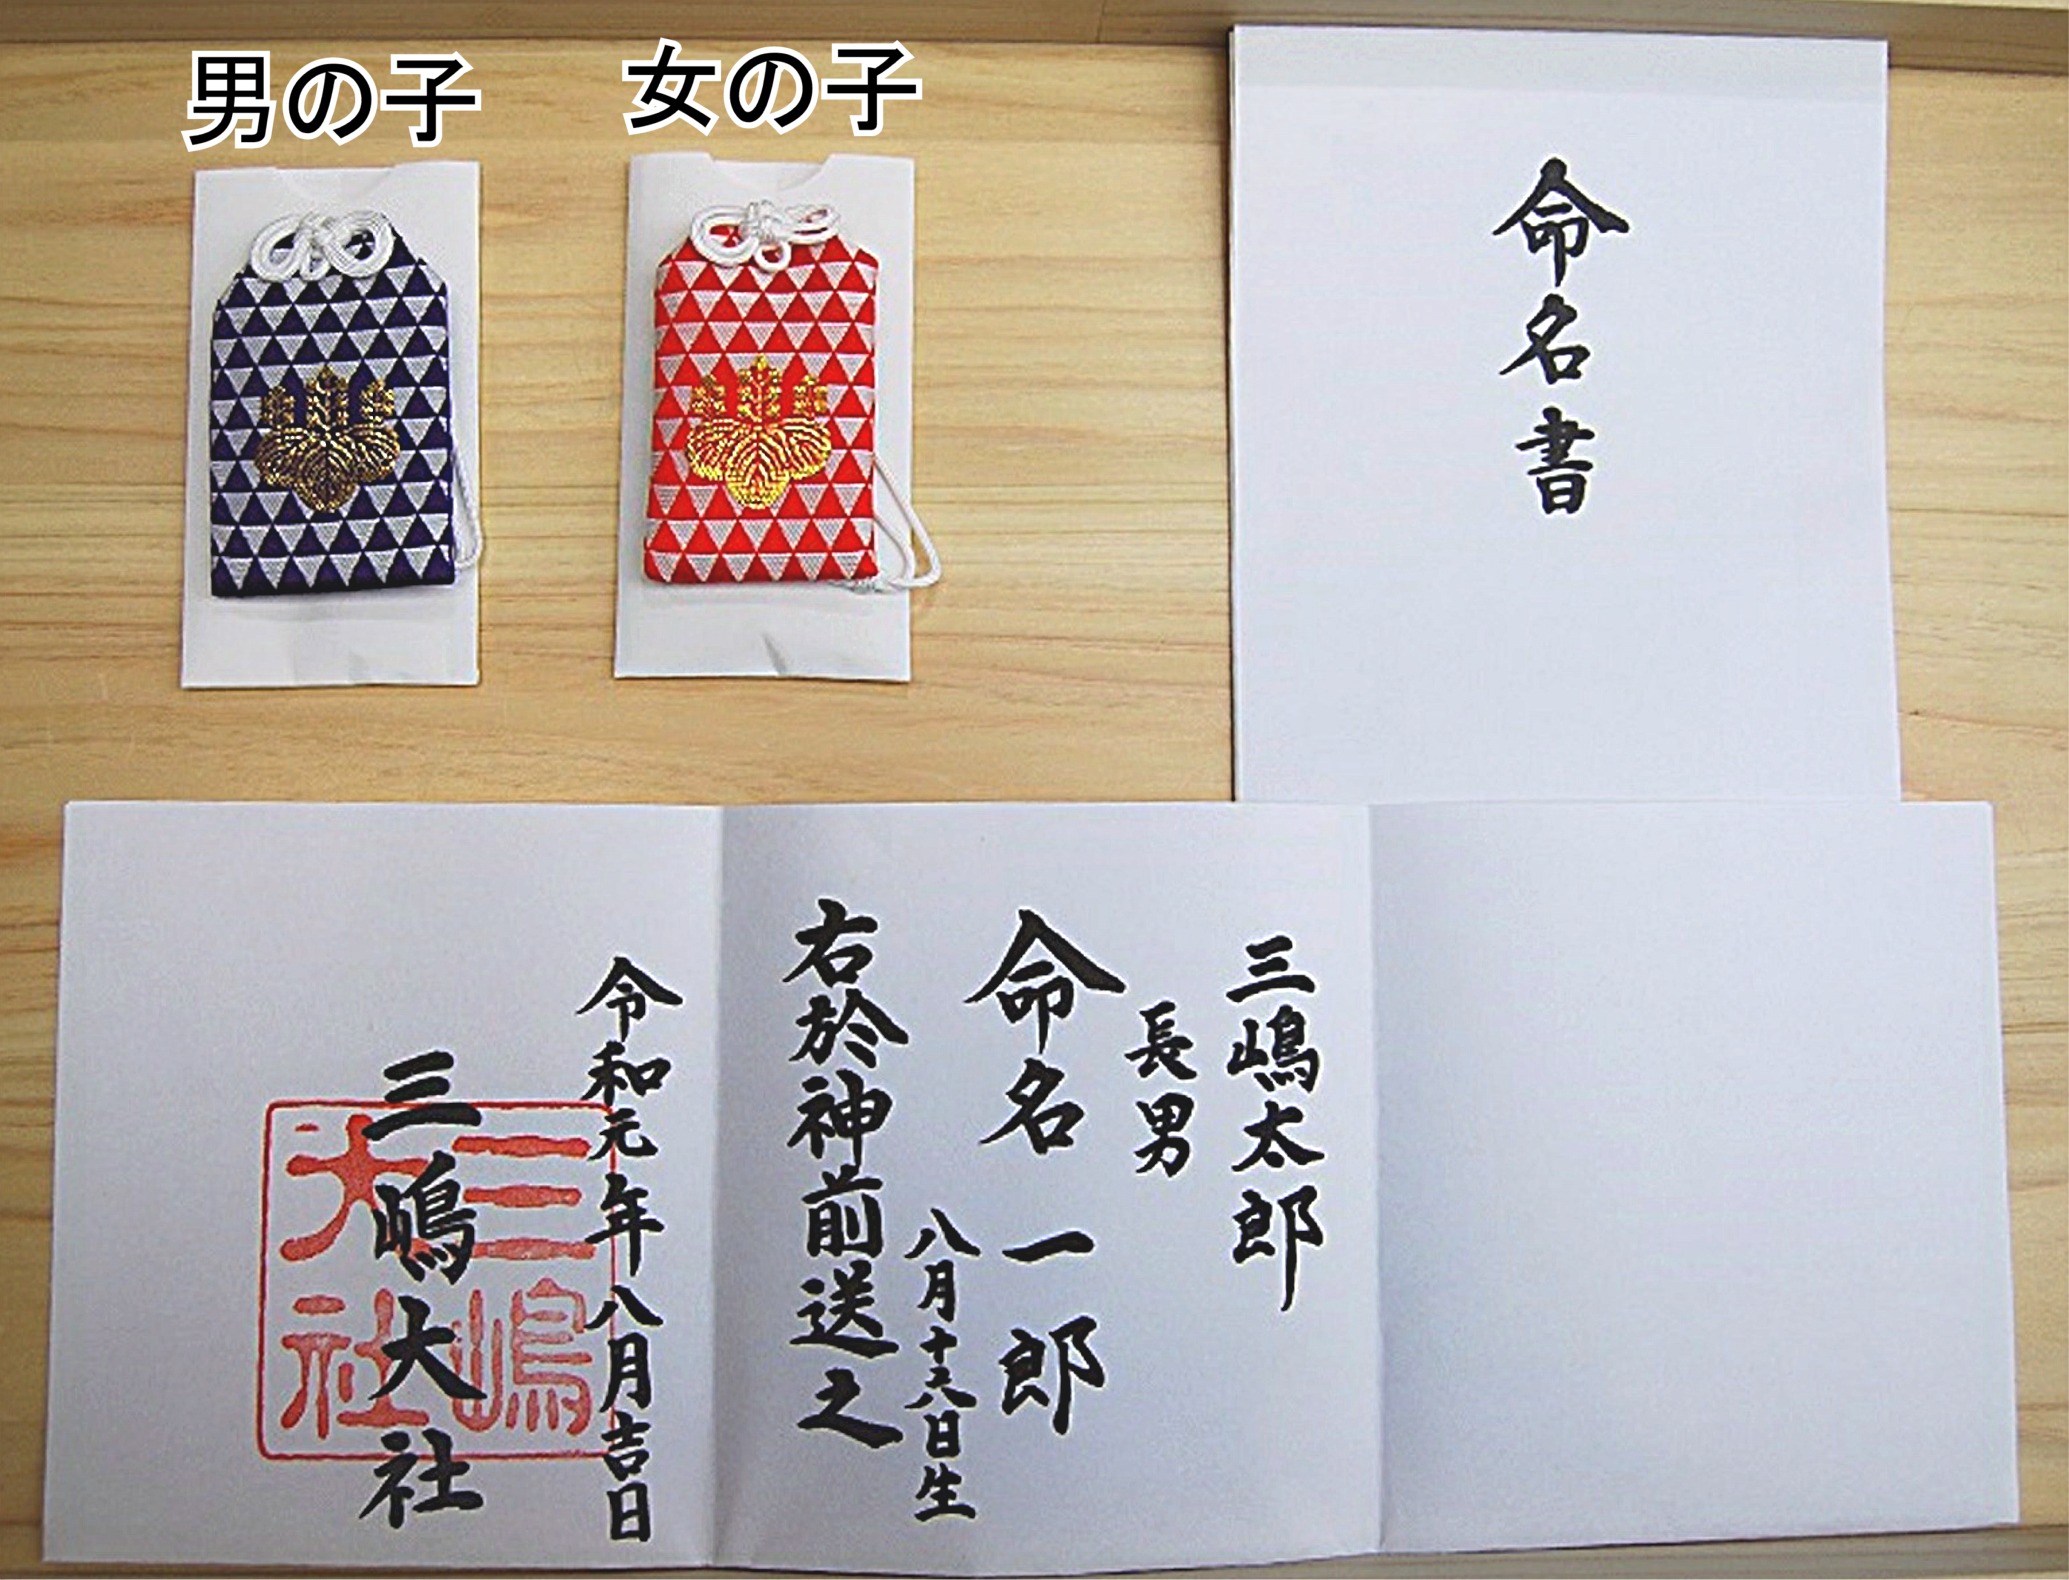 男の子
女の子
命名書
三嶋太郎
長男
命名 一郎
八月十六日生
右於神前送之
令和元年八月吉日
三嶋大社
三嶋
大社